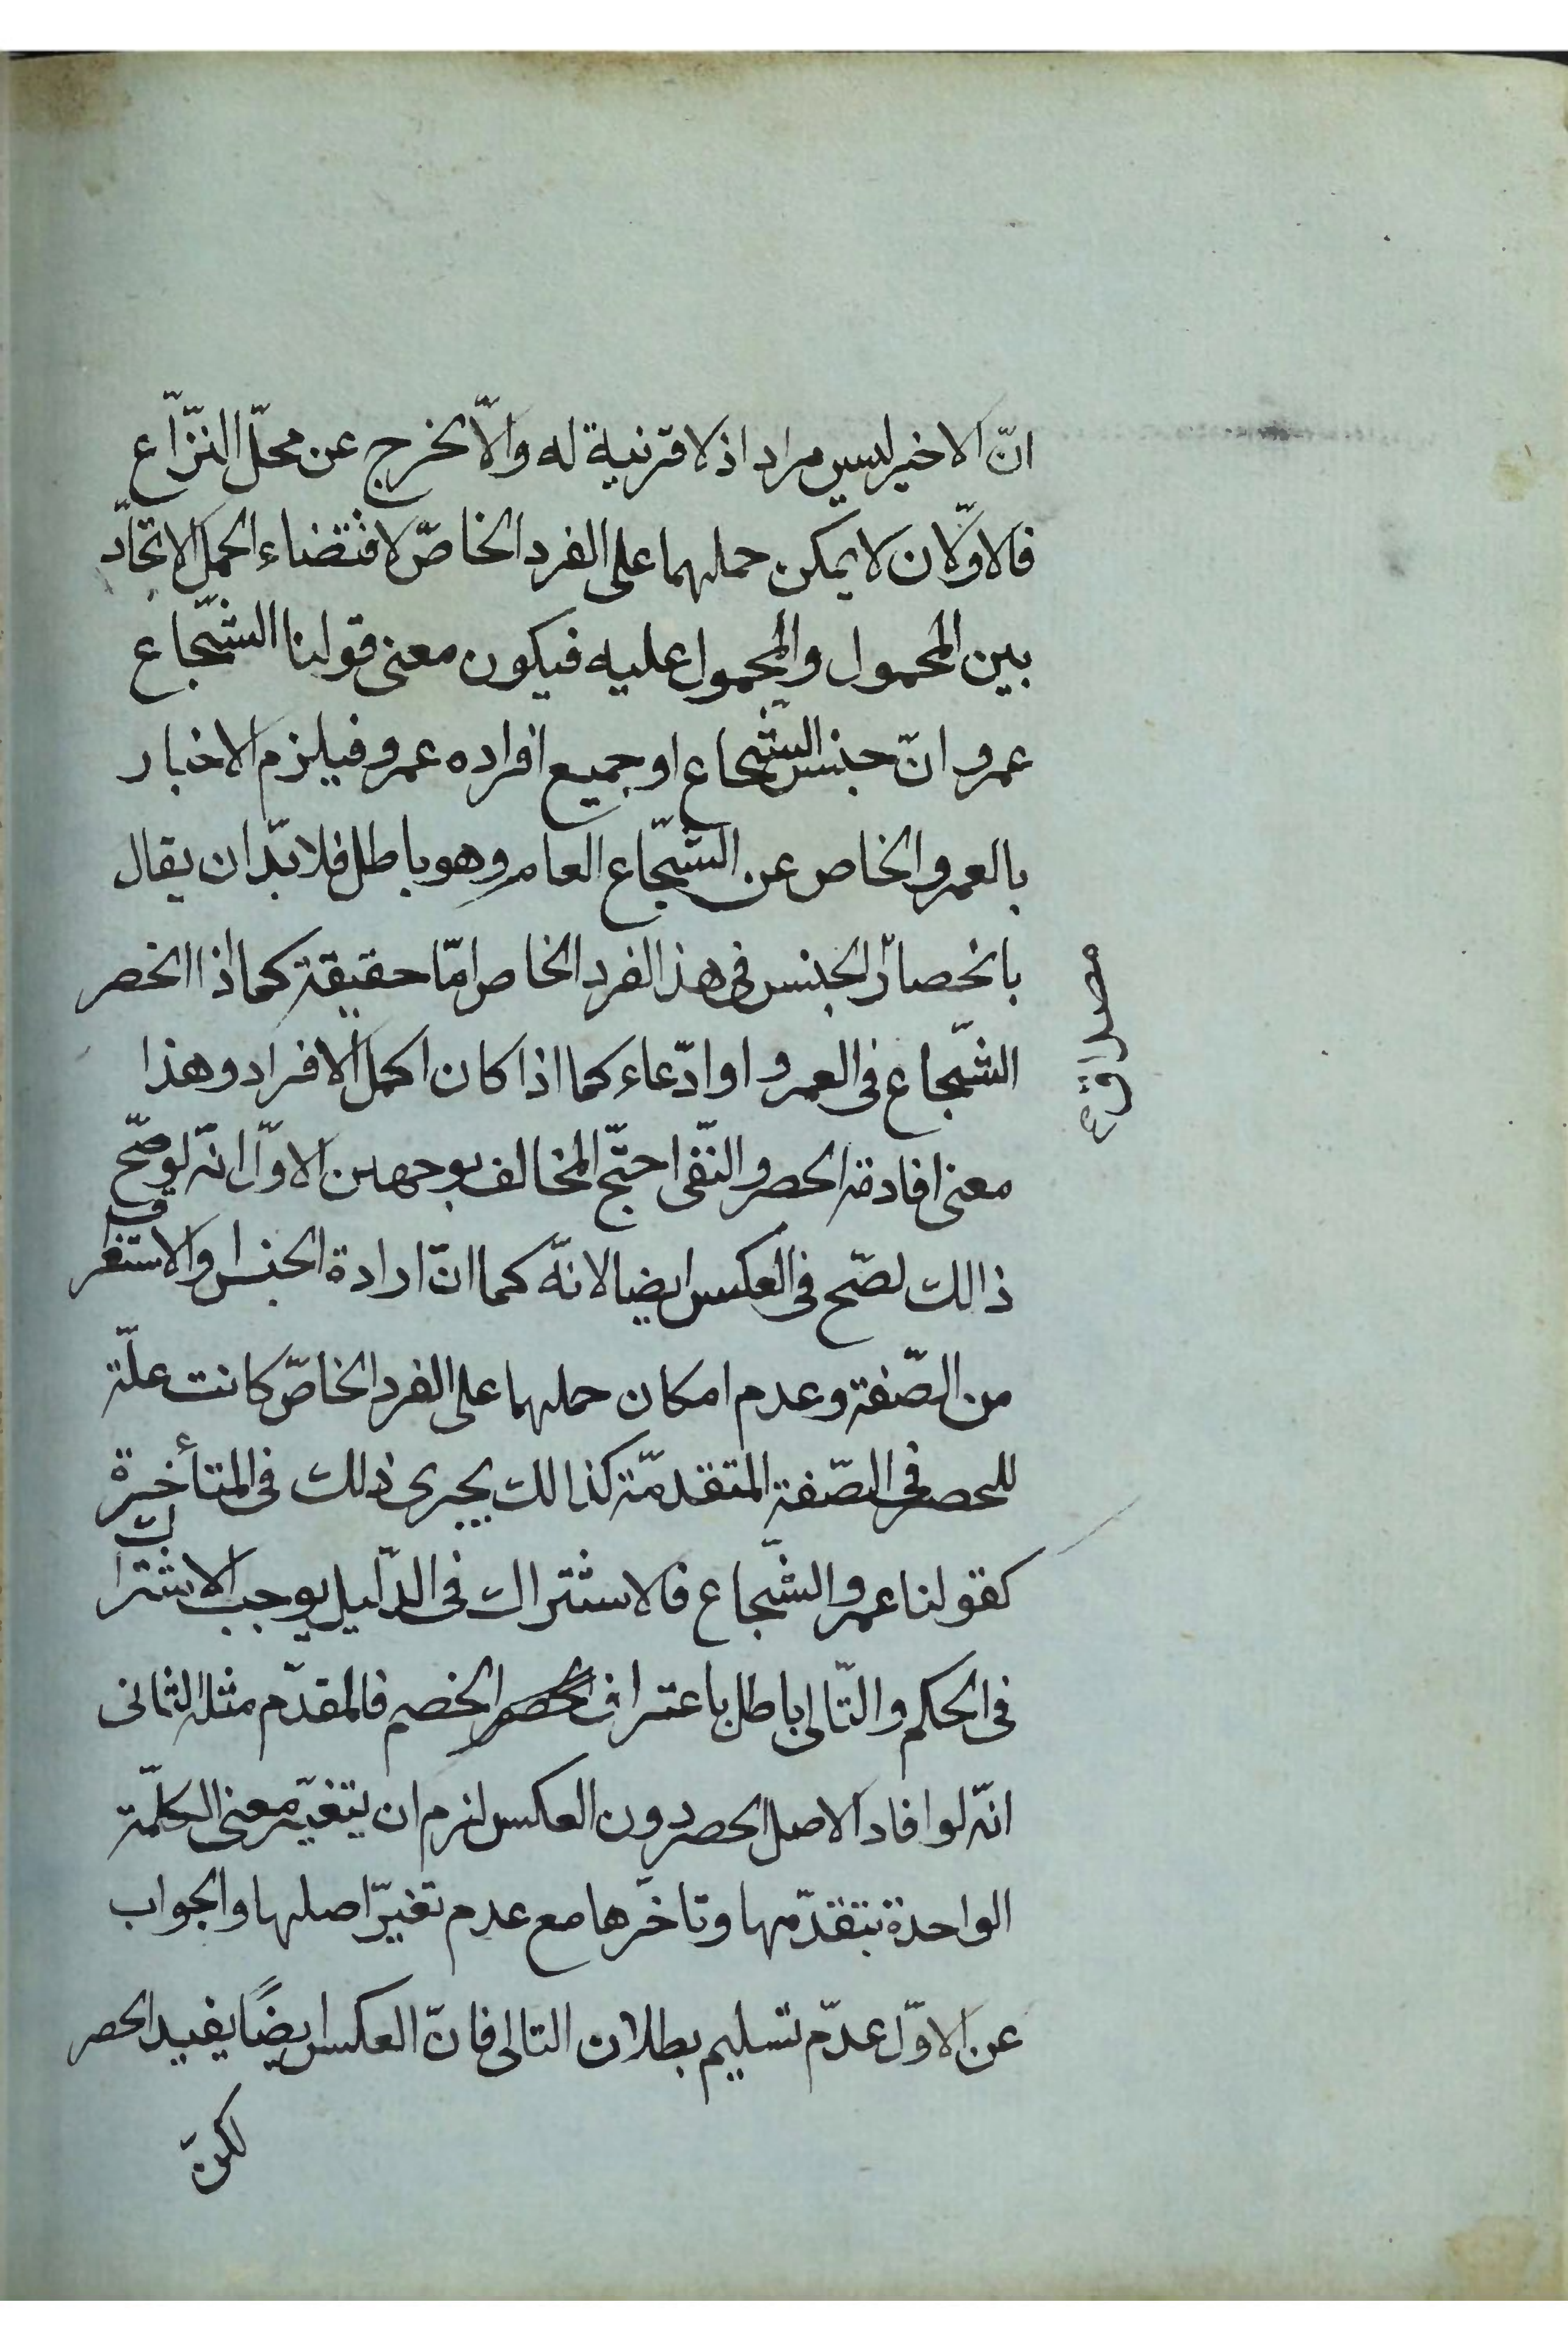 انّ الاخير ليس مراد اذ لا قرنية له والّا لخرج عن محلّ النّزاع
فالاوّلان لا يمكن حملهما على الفرد الخاصّ لاقتضاء الحمل الاتحّاد
بين المحمول والمحمول عليه فيكون معنى قولنا الشّجاع
عمرو انّ جنس الشّجاع او جميع افراده عمرو فيلزم الاخبار
بالعمرو الخاص عن الشّجاع العام وهو باطل فلا بدّ ان يقال
بانحصار الجنس فى هذ الفرد الخاص امّا حقيقة كما اذا انحصر
مصداق
الشّجاع فى العمرو او ادّعاء كما اذا كان اكمل الافراد وهذا
معنى افادة الحصر والنّفى احتجّ المخالف بوجهين الاوّل انّه لو صّح
ذالك لصّح فى العكس ايضا لانّه كما انّ ارادة الجنس والاستغراق
من الصّفة وعدم امكان حملهما على الفرد الخاصّ كانت علّة
للحصر فى الصّفة المتقدمّة كذالك يجرى ذلك فى المتأخرة
كقولنا عمرو الشّجاع فالاشتراك فى الدّليل يوجب الاشتراك
فى الحكم والتّالى باطل باعتراف الخصم فالمقدّم مثله الثانى
انّه لو افاد الاصل الحصر دون العكس لزم ان يتغيّر معنى الكلمّة
الواحدة بتقدّمها وتاخّرها مع عدم تغيّر اصلها والجواب
عن الاوّل عدّم تسليم بطلان التالى فانّ العكس ايضًا يفيد الحصر
لكنّ